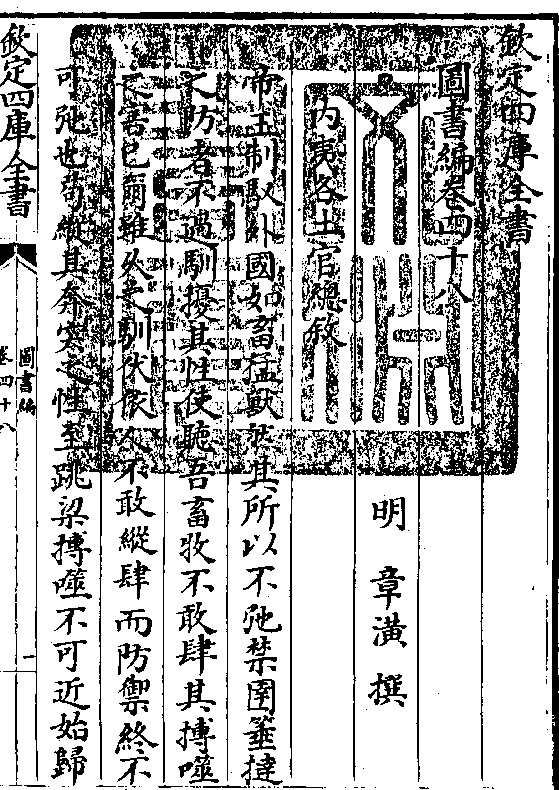 欽定四庫全書
圖書編卷四十八
明 章潢 撰
内夷各土官總敘
帝王制馭外國如畜猛獸然其所以不弛禁圉箠撻
之防者不過馴擾其性使聽吾畜牧不敢肆其搏噬
之害已爾雖久乗馴伏依人不敢縱肆而防禦終不
可弛也苟縱其奔突之性至跳梁搏噬不可近始歸
欽定四庫全書
圖書編
卷四十八
一